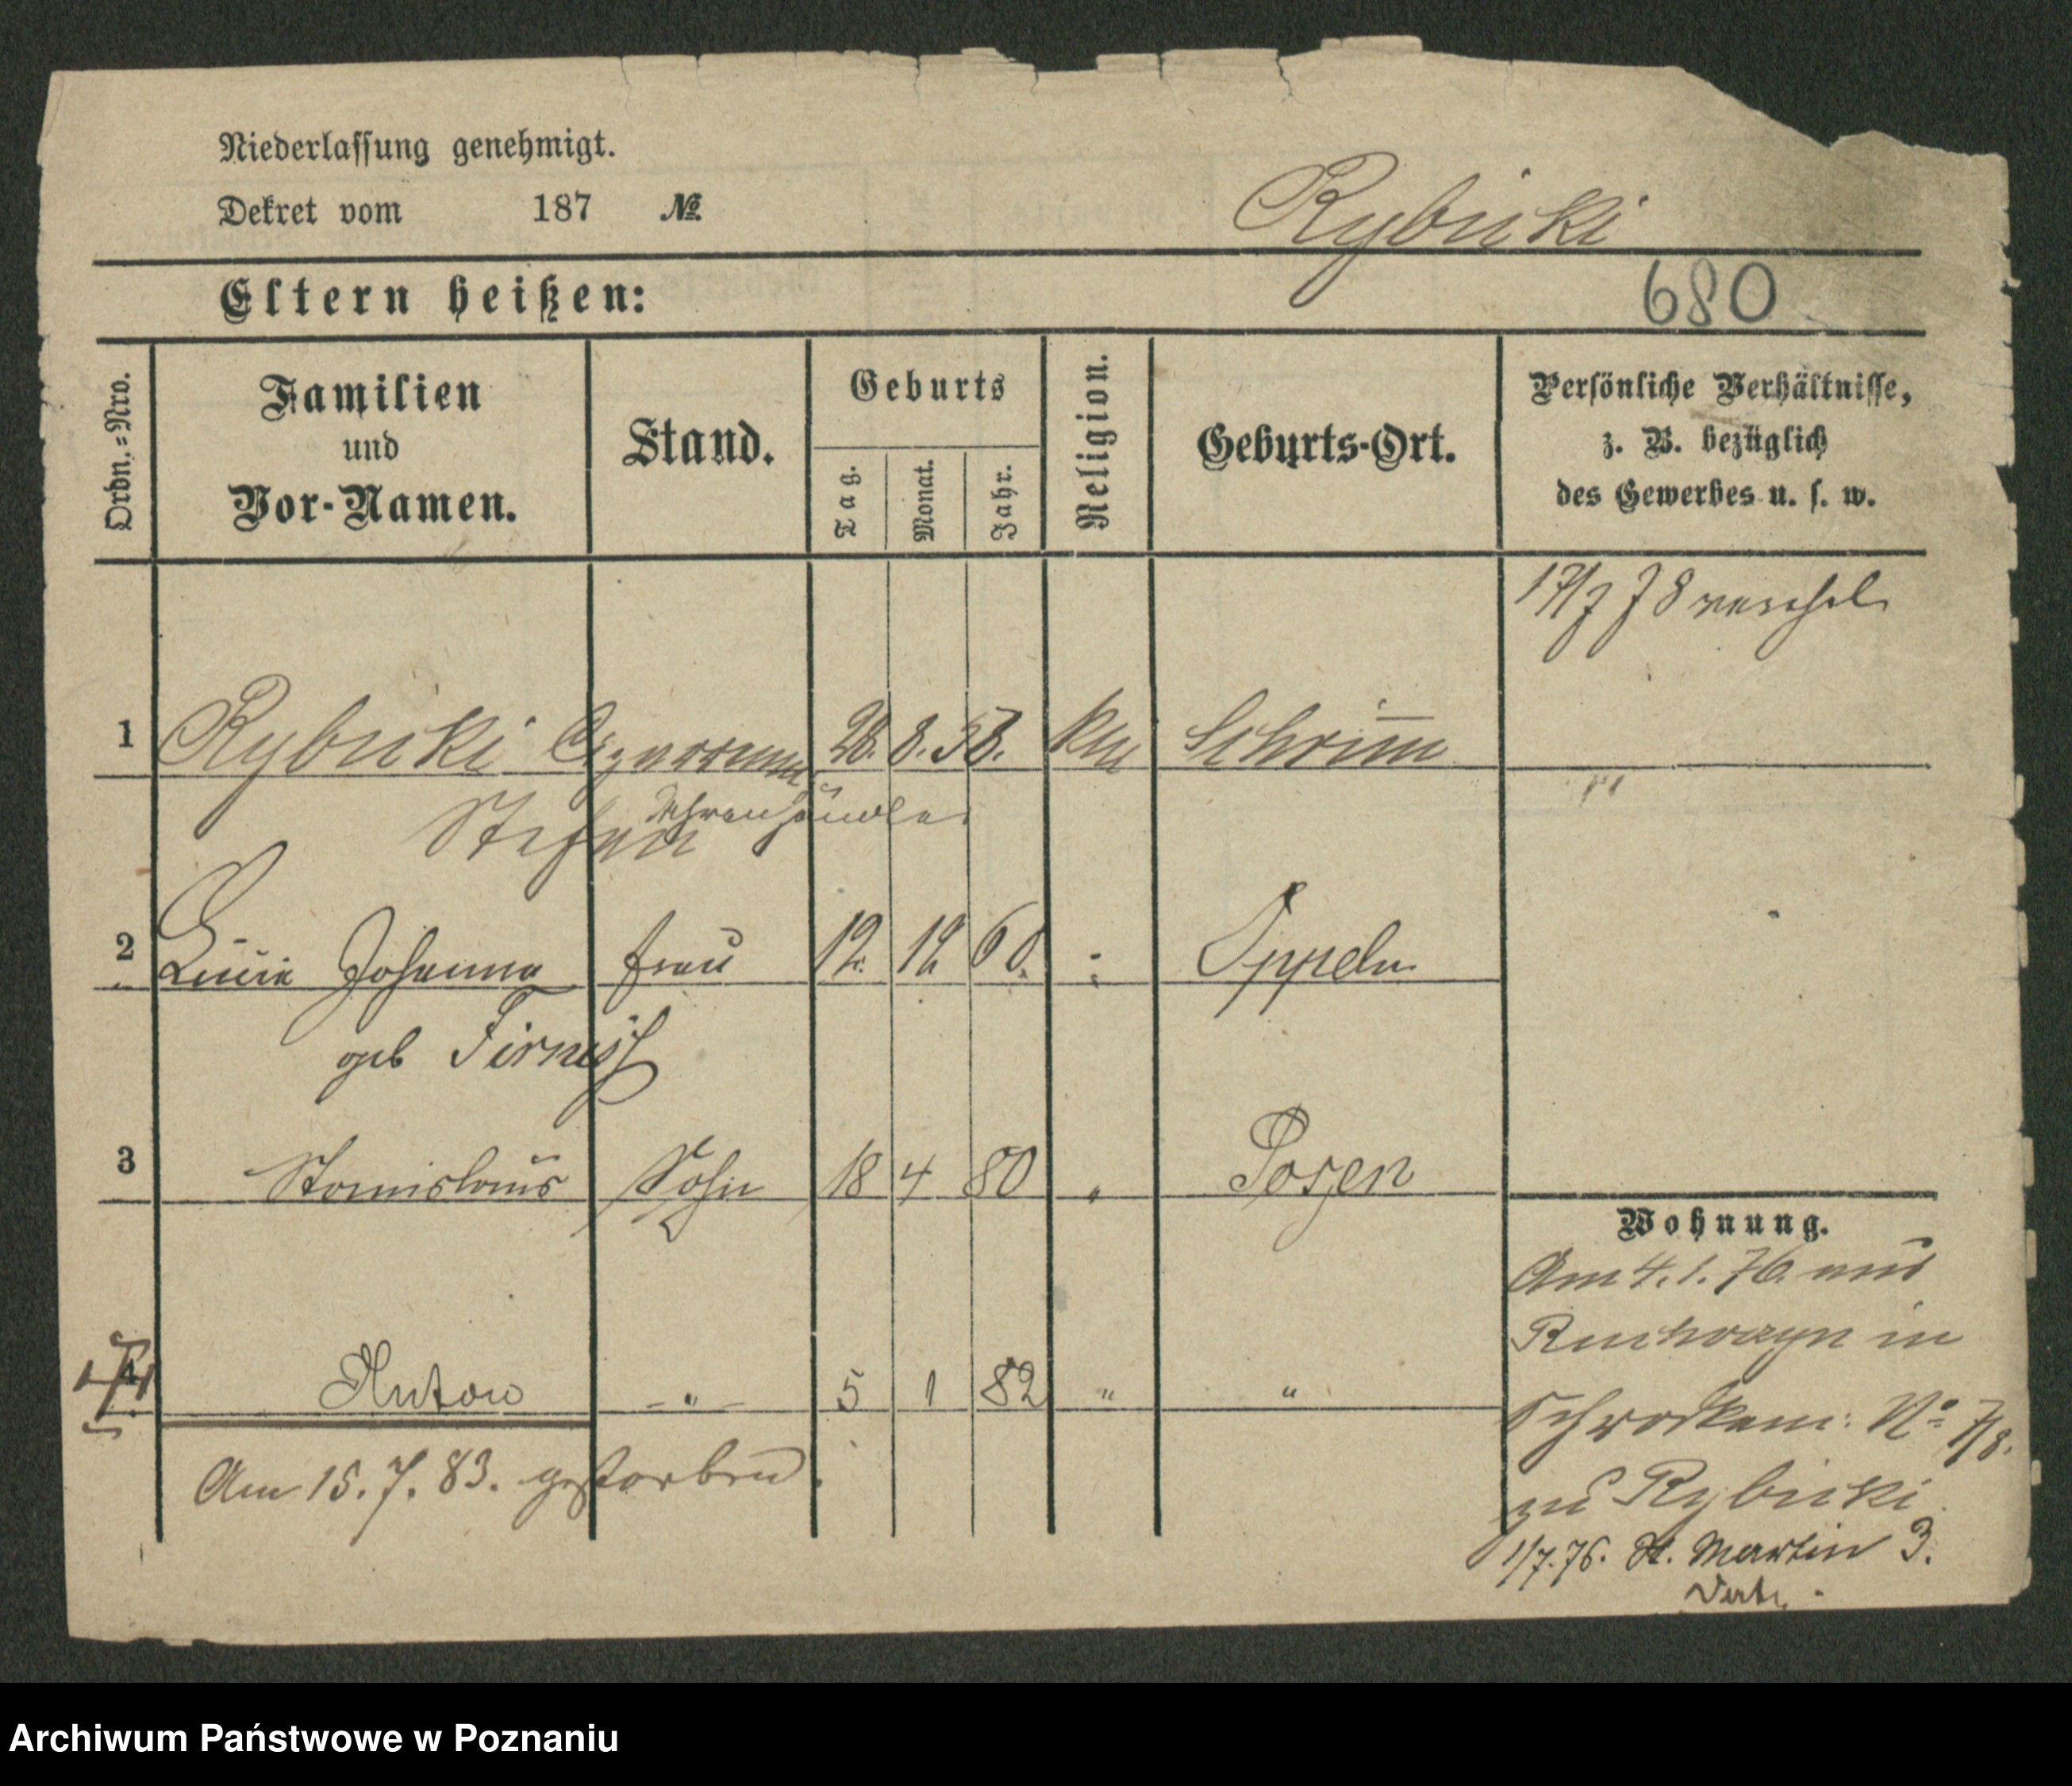 Niederlassung genehmigt.
Dekret vom 187 №
Rybicki
680
Eltern heißen:
Ordn.=Nro.
Familien
und
Vor-Namen.
Stand.
Geburts
Tag.
Monat.
Jahr.
Religion.
Geburts-Ort.
Persönliche Verhältnisse,
z. B. bezüglich
des Gewerbes u. s. w.
17/7 78
1 Rybicki 28. 8. 58. Schrimm
Stefan Uhrenhändler
2 Johanna Frau 12. 12 60. Oppeln
geb
3 Stanislaus Sohn 18 4 80 " Posen
4 Anton -"- 5 1 82 " "
Am 15. 7. 83. gestorben.
Wohnung.
Am 4. 1. 76. aus
in
No 7/8.
zu Rybicki
1/7. 76. St. Martin 3.
Archiwum Państwowe w Poznaniu